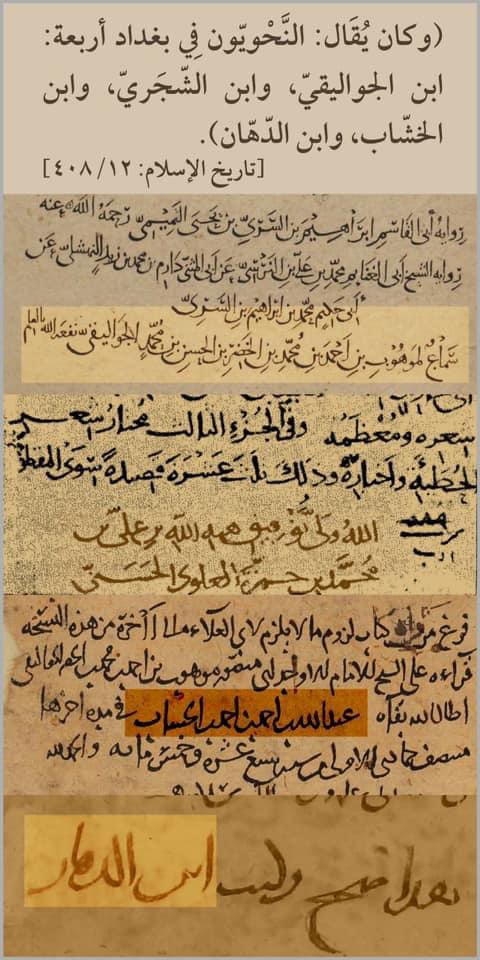 (وكان يُقَال: النَّحْويّون فِي بغداد أربعة:
ابن الجواليقيّ، وابن الشّجَريّ، وابن
الخشّاب، وابن الدّهّان).
[تاريخ الإسلام: ١٢/ ٤٠٨]
رِوايةُ أبي القاسم إبراهيم بن السَّرِيّ بن يحيى التميمي رحمه الله عنه
رِوايةُ الشيخ أبي الغنائم محمد بن علي بن النَّرْسيّ عن أبي المثنى دارم بن محمد بن زيد النهشلي عن
أبي حكيم محمد بن إبراهيم بن السَّرِيّ
سَمَاعٌ لموهوب بن أحمد بن محمد بن الخضر بن الحسن بن محمد الجواليقي نفعه الله بالعلم
شعره ومُعْظَمُه وفي الجزء الثالث مختار شعر
الحُطَيئة وأخباره وذلك ثلث عشرة قصيدة سوى
اللهُ وليّ توفيق هبه الله بن علي بن
محمّد بن حمزة العلوي الحسنيّ
فرغ من كتاب لزوم ما لا يلزم لابي العلاء من هذه النسخة
قراءه على الشيخ الامام موهوب بن احمد بن محمد بن الجواليقي
اطال الله بقاه عبد الله بن احمد بن احمد بن الخشاب في مده اخرها
منتصف جمادى الاولى من سنه تسع عشرة وخمس مائه والحمد لله
هذا صحيح وكتب ابن الدهان